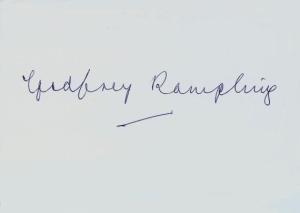 Godfrey Rampling